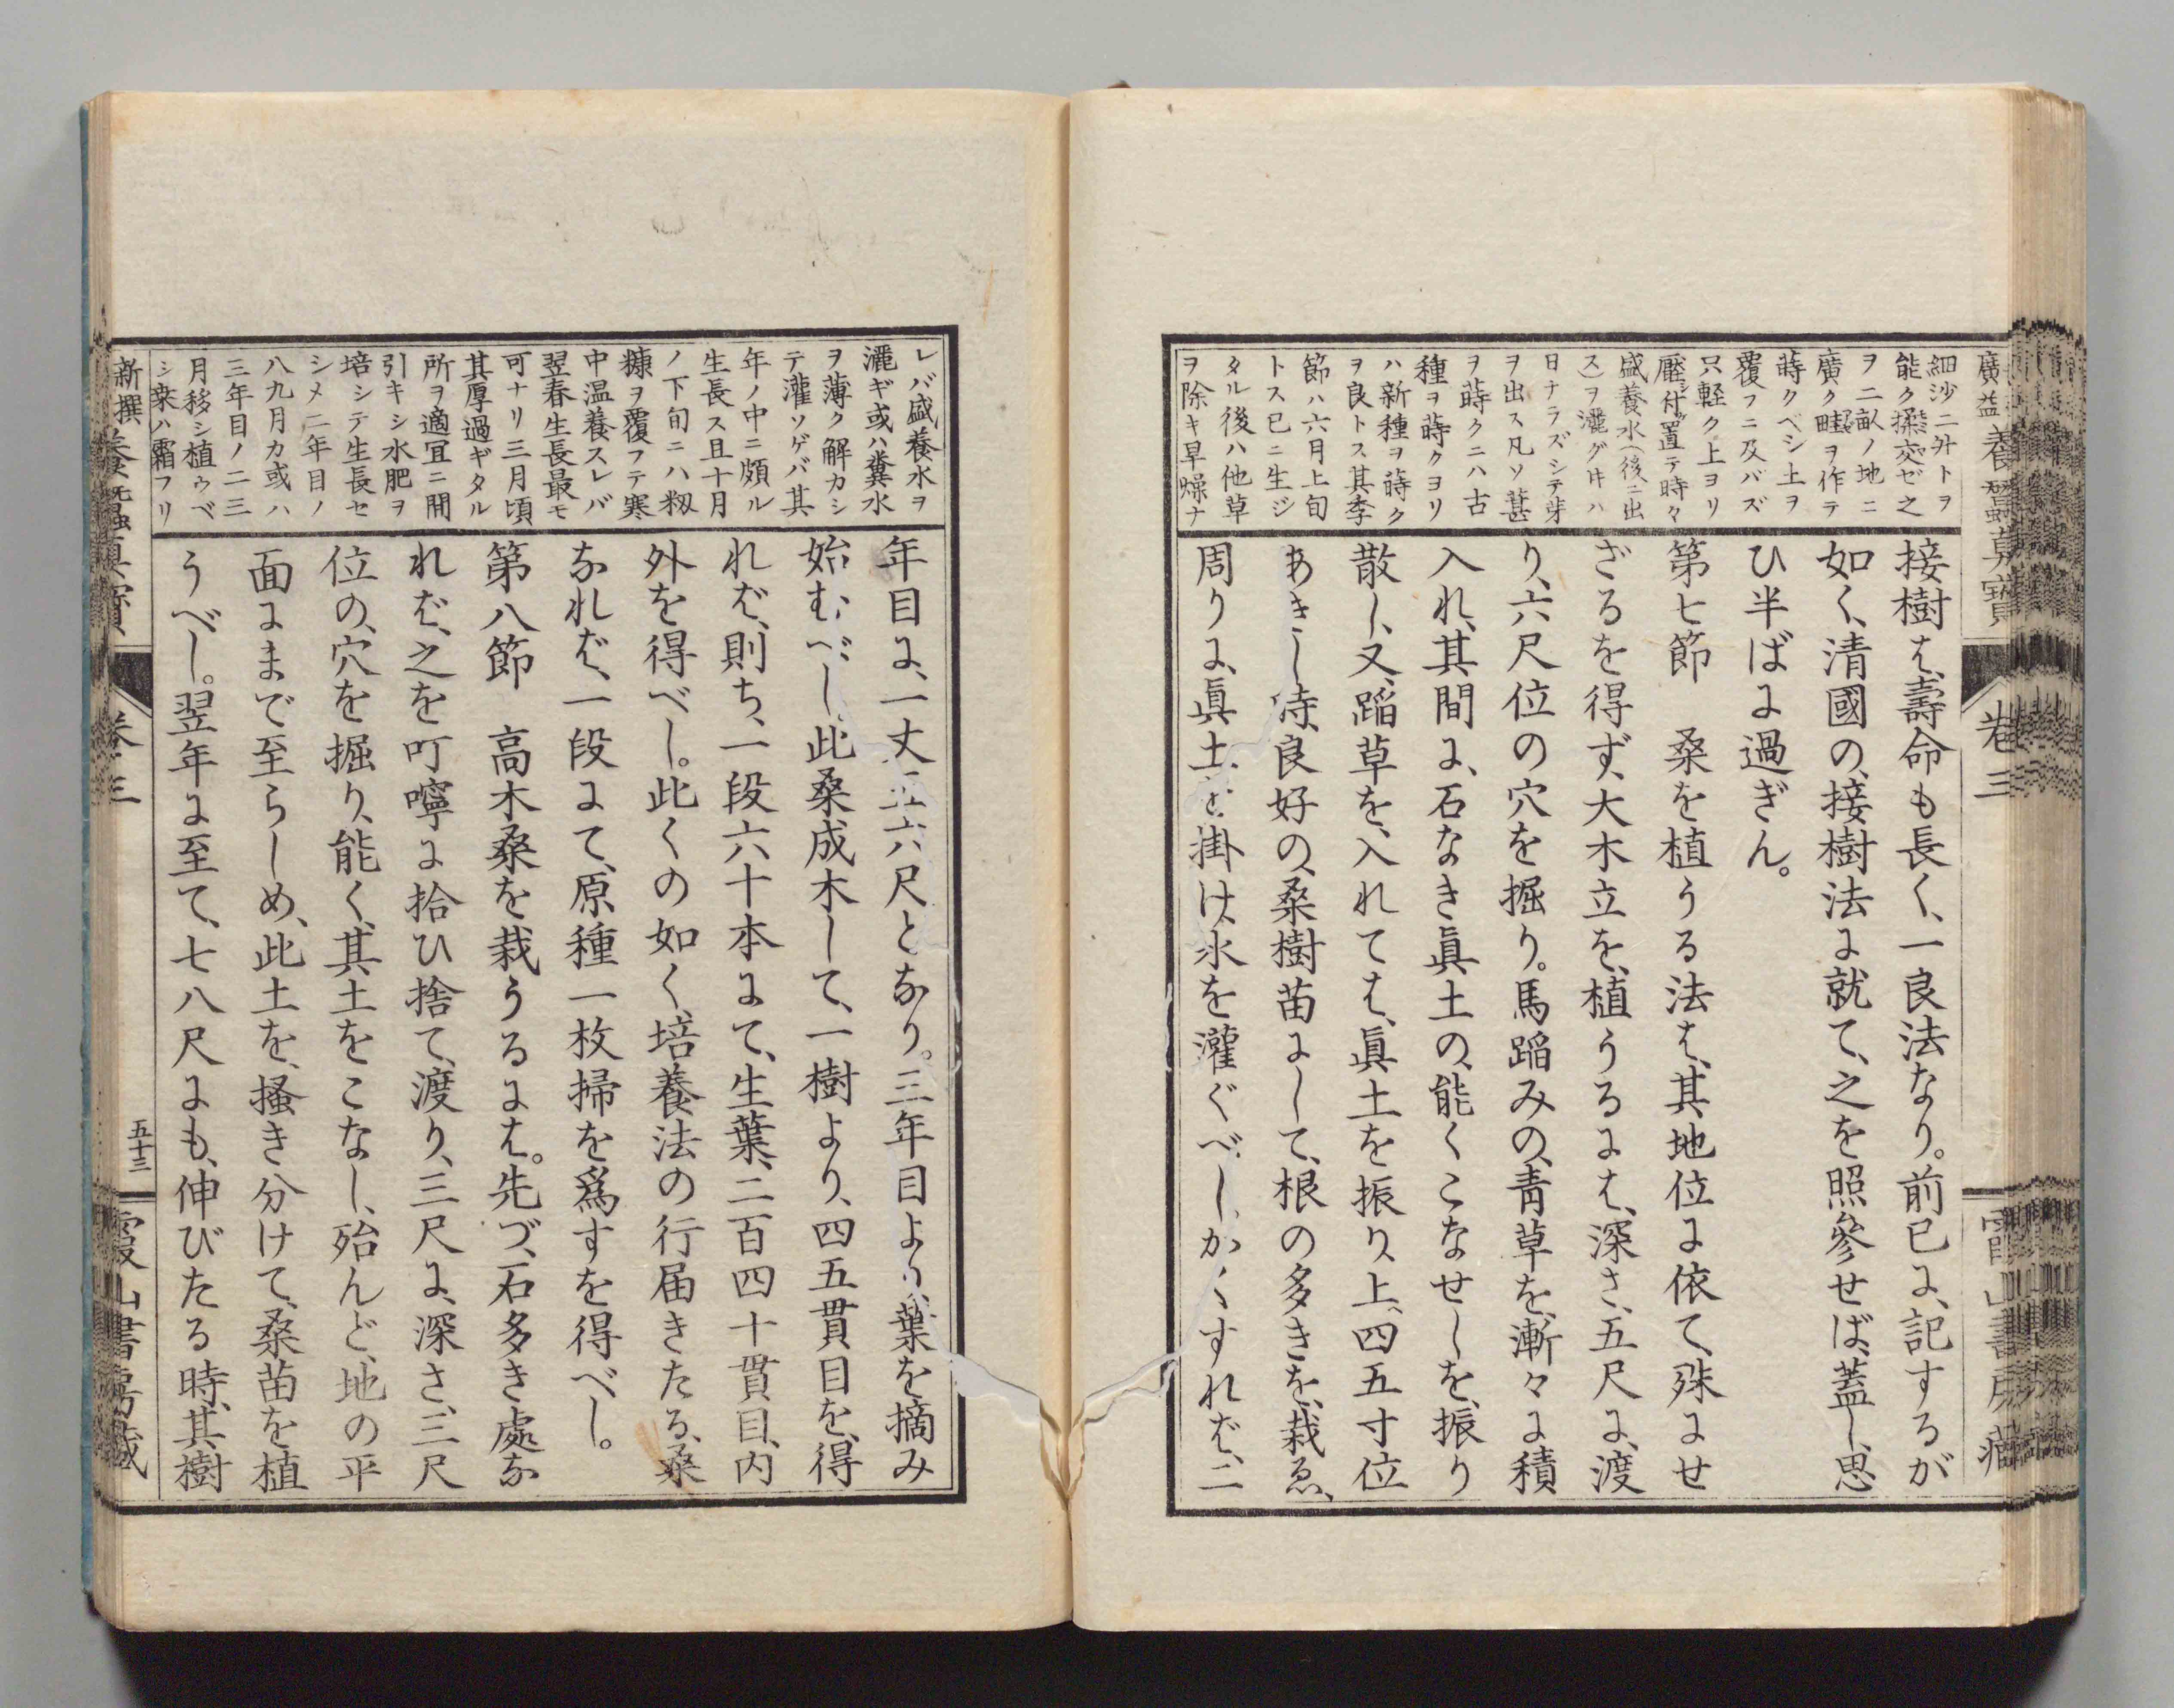 廣益養蠶真寶 卷三 霞山書房藏
細沙二升トヲ
能ク交ゼ之
ヲ二畝ノ地ニ
廣ク畦ヲ作テ
蒔クベシ土ヲ
覆フニ及バズ
只軽ク上ヨリ
壓付置テ時々
盛養水(後ニ出
ス)ヲ灑グ𪜈ハ
日ナラズシテ芽
ヲ出ス凡ソ葚
ヲ蒔クニハ古
種ヲ蒔クヨリ
ハ新種ヲ蒔ク
ヲ良トス其季
節ハ六月上旬
トス已ニ生ジ
タル後ハ他草
ヲ除キ旱燥ナ
接樹は、壽命も長く、一良法なり。前已に、記するが
如く、清國の、接樹法に就て、之を照參せば、蓋し、思
ひ半ばに過ぎん。
第七節 桑を植うる法は、其地位に依て、殊にせ
ざるを得ず、大木立を、植うるには、深さ、五尺に、渡
り、六尺位の穴を掘り。馬蹈みの、青草を、漸々に積
入れ、其間に、石なき眞土の、能くこなせしを、振り
散し、又、蹈草を、入れては、眞土を振り、上、四五寸位
あきし時、良好の、桑樹苗にして、根の多きを、栽ゑ、
周りに、眞土を掛け、水を灌ぐべし、かくすれば、二
レバ盛養水ヲ
灑ギ或ハ糞水
ヲ薄ク解カシ
テ灌ソゲバ其
年ノ中ニ頗ル
生長ス且十月
ノ下旬ニハ籾
糠ヲ覆フテ寒
中温養スレバ
翌春生長最モ
可ナリ三月頃
其厚過ギタル
所ヲ適冝ニ間
引キシ水肥ヲ
培シテ生長セ
シメ二年目ノ
八九月カ或ハ
三年目ノ二三
月移シ植ウベ
シ桒ハ霜フリ
年目に、一丈五六尺となり。三年目より、葉を摘み
始むべし。此桑成木して、一樹より、四五貫目を、得
れば、則ち、一段六十本にて、生葉、二百四十貫目、内
外を得べし。此くの如く、培養法の行届きたる、桑
なれば、一段にて、原種一枚掃を爲すを得べし。
第八節 高木桑を栽うるには。先づ、石多き處な
れば、之を叮嚀に拾ひ捨て、渡り、三尺に、深さ、三尺
位の、穴を掘り、能く、其土をこなし、殆んど、地の平
面にまで至らしめ、此土を、搔き分けて、桑苗を植
うべし。翌年に至て、七八尺にも、伸びたる時、其樹
新撰養蠶真寶 卷三 五十三 霞山書房藏